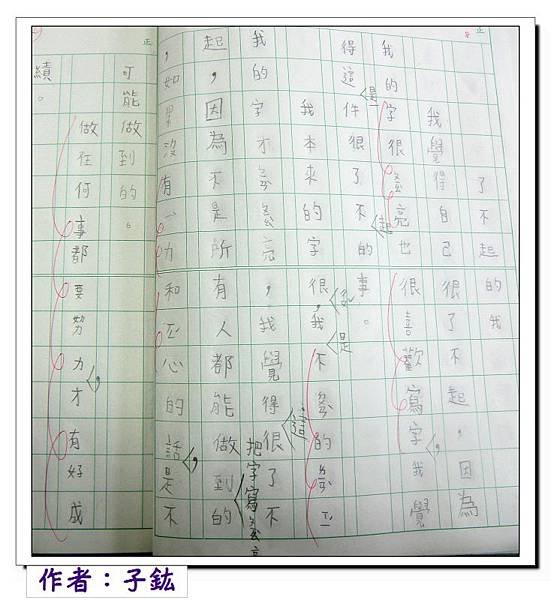 了不起的我
我覺得自己很了不起，因為
我的字很漂亮也很喜歡寫字，我覺
得這是件很了不起的事。
我本來的字很，我是不
我的字才漂亮，我覺得這很了不
把字寫漂亮
起，因為不是所有人都能做到的
，如果沒有力和心的話，是不
可能做到的。
做任何事都要努力，才有好成
績。
作者：子鈜